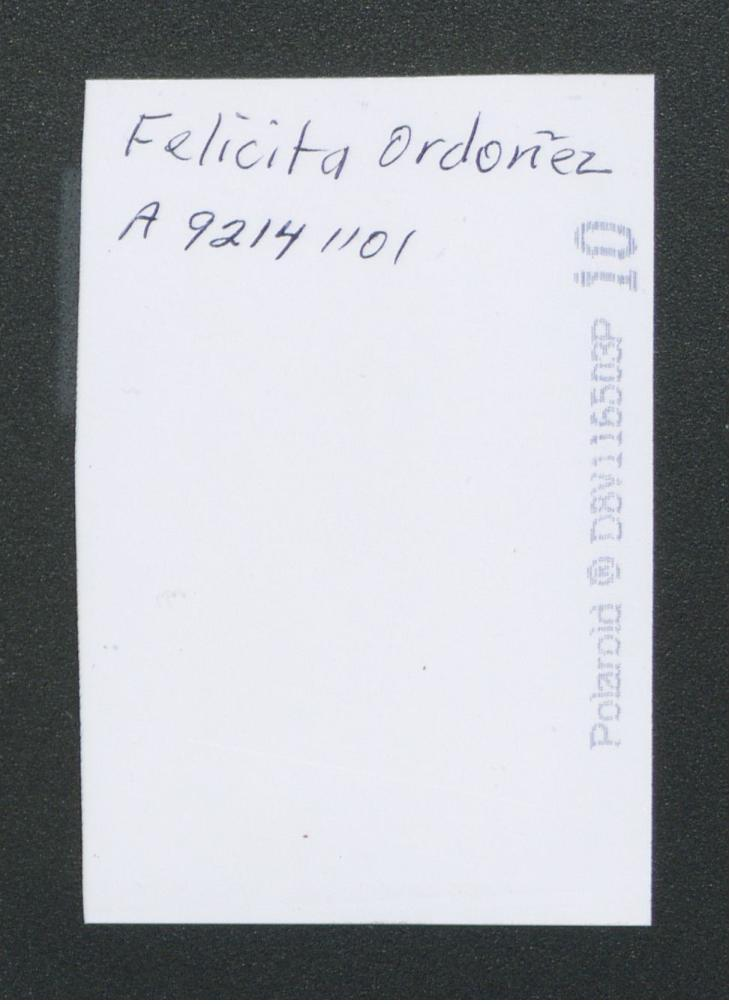 Felicita Ordoñez
A 9214 1101
10
Polaroid ® D8V116503P